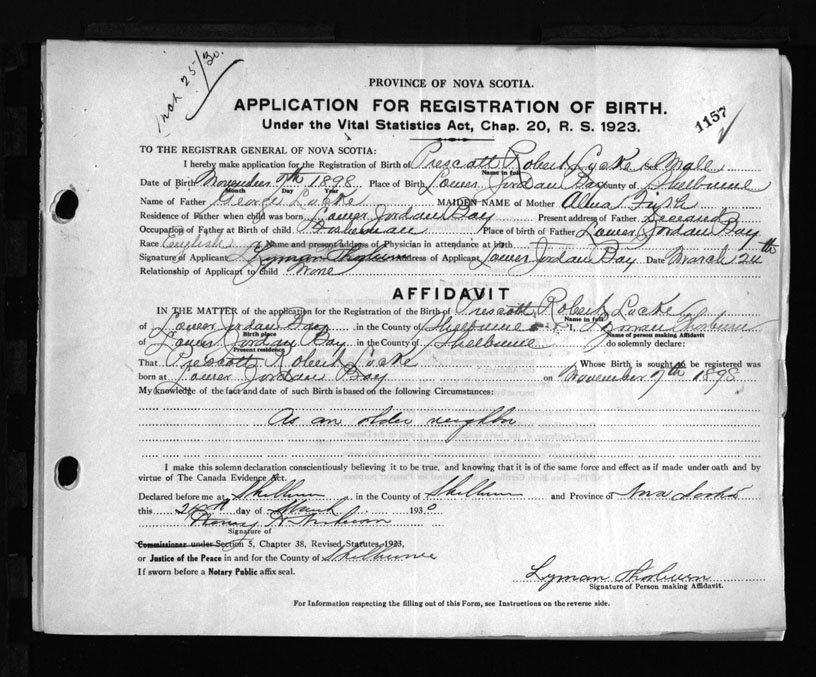 Mch 25/30.
PROVINCE OF NOVA SCOTIA.
APPLICATION FOR REGISTRATION OF BIRTH.
1157
Under the Vital Statistics Act, Chap. 20, R. S. 1923.
TO THE REGISTRAR GENERAL OF NOVA SCOTIA:
I hereby make application for the Registration of Birth of Prescott Robert Locke Sex Male
Name in full
Date of Birth November 7th 1898 Place of Birth Lower Jordan Bay County of Shelburne
Month Day Year
Name of Father George Locke MAIDEN NAME of Mother Alma
Residence of Father when child was born Lower Jordan Bay Present address of Father Deceased
Occupation of Father at Birth of child Fisherman Place of birth of Father Lower Jordan Bay
Race English Name and present address of Physician in attendance at birth
Signature of Applicant Lyman Thorburn Address of Applicant Lower Jordan Bay Date March 24th
Relationship of Applicant to child None
AFFIDAVIT
IN THE MATTER of the application for the Registration of the Birth of Prescott Robert Locke
Name in full
of Lower Jordan Bay in the County of Shelburne I, Lyman Thorburn
Birth place Name of person making Affidavit
of Lower Jordan Bay in the County of Shelburne do solemnly declare:
Present residence
That Prescott Robert Locke Whose Birth is sought to be registered was
born at Lower Jordan Bay on November 7th 1898
My knowledge of the fact and date of such Birth is based on the following Circumstances:
As an older neighbor
I make this solemn declaration conscientiously believing it to be true, and knowing that it is of the same force and effect as if made under oath and by
virtue of The Canada Evidence Act.
Declared before me at Shelburne in the County of Shelburne and Province of Nova Scotia
this 24th day of March 1930
Signature of
Commissioner under Section 5, Chapter 38, Revised Statutes, 1923,
or Justice of the Peace in and for the County of Shelburne
If sworn before a Notary Public affix seal.
Lyman Thorburn
Signature of Person making Affidavit.
For Information respecting the filling out of this Form, see Instructions on the reverse side.